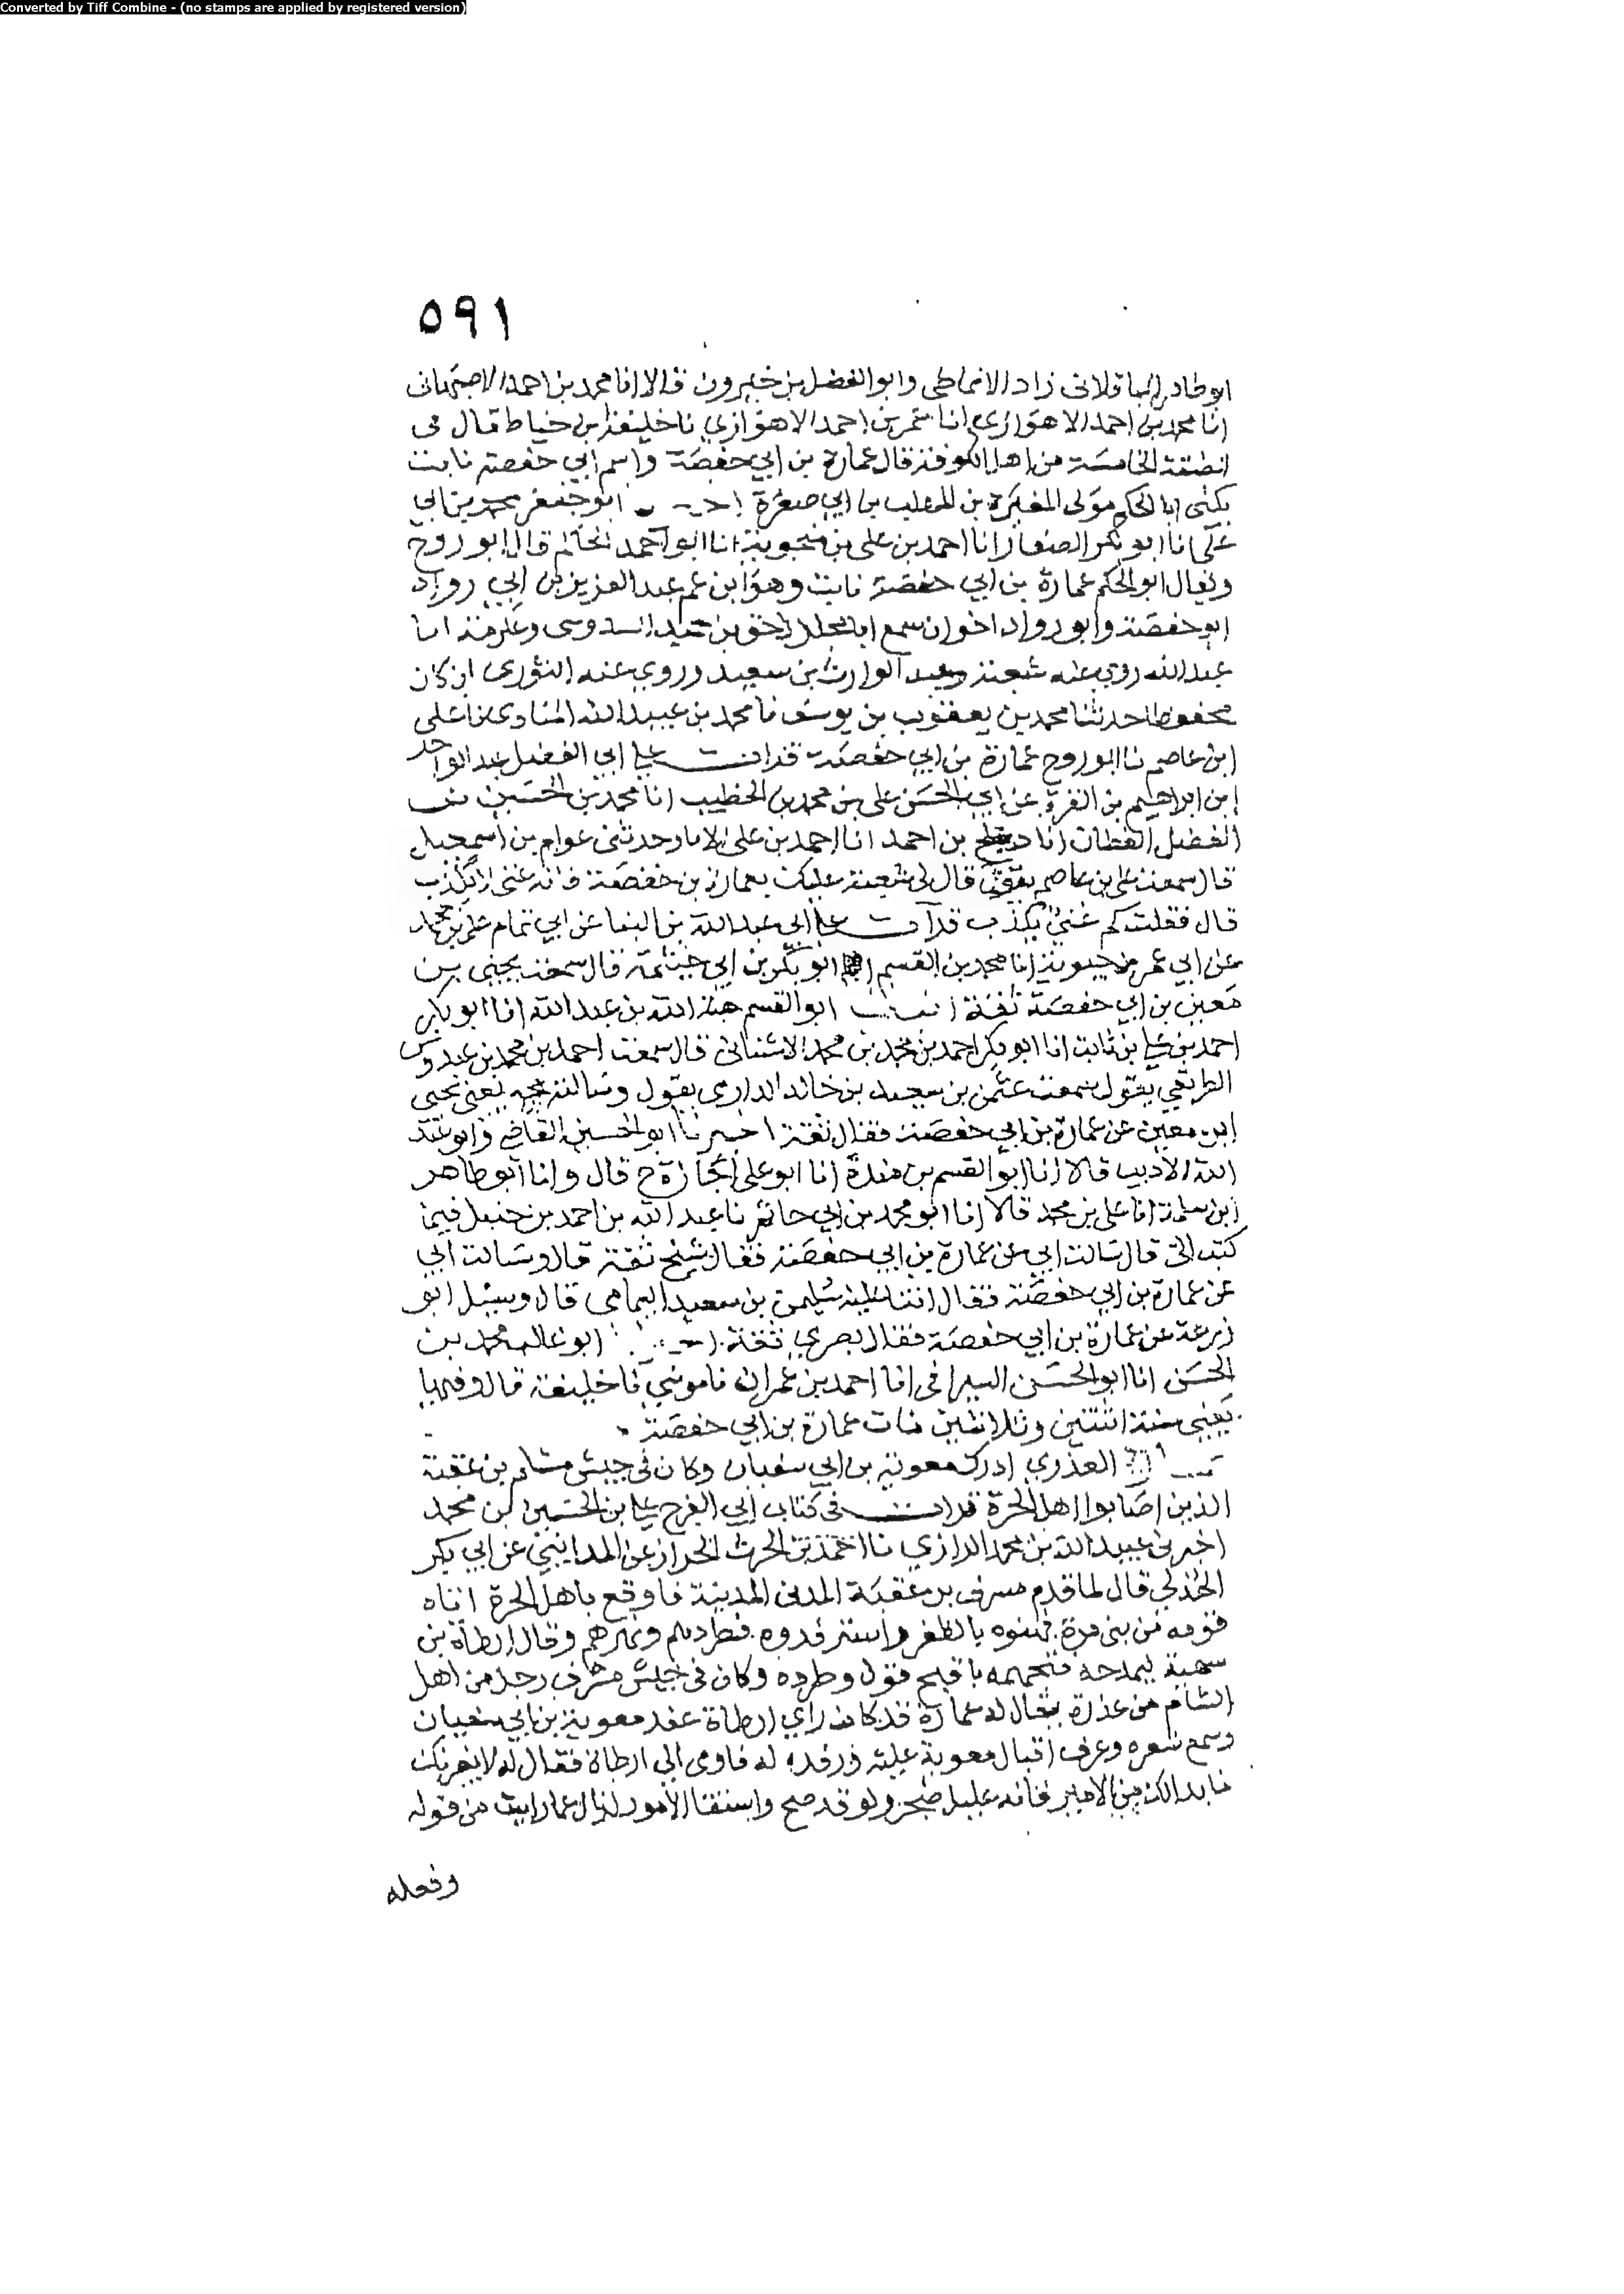 Converted by Tiff Combine - (no stamps are applied by registered version)
٥٩١
ابو طاهر الباقلاني زاد الانماطي وابو الفضل بن خيرون قالا انا محمد بن احمد الاصبهاني
انا محمد بن احمد الاهوازي انا عمر بن احمد الاهوازي نا خليفة بن خياط قال في
الطبقة الخامسة من اهل الكوفة قال عمارة بن ابي حفصة واسم ابي حفصة نابت
يكنى ابا الحكم مولى المغيرة بن المهلب بن ابي صفرة ابو جعفر محمد بن ابي
علي انا ابو بكر الصفار انا احمد بن علي بن منجوية انا ابو احمد الحاكم قال ابو روح
ويقال ابو الحكم عمارة بن ابي حفصة نابت وهو ابن عم عبد العزيز بن ابي رواد
ابو حفصة وابو رواد اخوان سمع ابا مجلز لاحق بن حميد السدوسي وعكرمة ابا
عبد الله روى عنه شعبة وعبد الوارث بن سعيد وروى عنه الثوري ان كان
محفوظا حدثنا محمد بن يعقوب بن يوسف نا محمد بن عبيد الله المنادي نا علي
ابن عاصم نا ابو روح عمارة بن ابي حفصة قرات على ابي الفضل عبد الواحد
ابن ابراهيم بن القرة عن ابي الحسن علي بن محمد بن الخطيب انا محمد بن الحسين بن
الفضل القطان انا دعلج بن احمد انا احمد بن علي الابار حدثني عوام بن اسمعيل
قال سمعت علي بن عاصم يقول قال لي شعبة عليك بعمارة بن حفصة فانه غني لا يكذب
قال فقلت كم غني يكذب قرات على ابي عبد الله بن البنا عن ابي تمام علي بن محمد
عن ابي عمر بن حيوية انا محمد بن القسم ابو بكر بن ابي خيثمة قال سمعت يحيى بن
معين بن ابي حفصة ثقة ابو القسم هبة الله بن عبد الله انا ابو بكر
احمد بن علي بن ثابت انا ابو بكر احمد بن محمد بن محمد الاشناني قال سمعت احمد بن محمد بن عبدوس
الطرايفي يقول سمعت عثمن بن سعيد بن خالد الدارمي يقول وسالته يعني يحيى
ابن معين عن عمارة بن ابي حفصة فقال ثقة اخبرنا ابو الحسين القاضي وابو عبد
الله الاديب قالا انا ابو القسم بن مندة انا ابو علي اجازة ح قال وانا ابو طاهر
ابن سلمة انا علي بن محمد قالا انا ابو محمد بن ابي حاتم نا عبد الله بن احمد بن حنبل فيما
كتب الي قال سالت ابي عن عمارة بن ابي حفصة فقال شيخ ثقة قال وسالت ابي
عن عمارة بن ابي حفصة فقال اثنا عليه سليمن بن سعيد اليمامي قال وسئل ابو
زرعة عن عمارة بن ابي حفصة فقال بصري ثقة ابو غالب محمد بن
الحسن انا ابو الحسن السيرافي انا احمد بن عمران نا موسى نا خليفة قال وفيها
يعني سنة اثنتين وثلاثين مات عمارة بن ابي حفصة
العذري ادرك معوية بن ابي سفيان وكان في جيش مسلم بن عقبة
الذين اصابوا اهل الحرة قرات في كتاب ابي الفرج علي بن الحسين بن محمد
اخبرني عبيد الله بن محمد الرازي نا احمد بن الحرث الخراز عن المدايني عن ابي بكر
الهذلي قال لما قدم مسرف بن عقبة المدني المدينة فاوقع باهل الحرة اتاه
قومه من بني مرة فهنوه بالظفر واسترفدوه فطردهم ونهرهم وقال ارطاة بن
سهية ليمدحه فتجهمه باقبح قول وطرده وكان في جيش مسرف رجل من اهل
الشام من عذرة يقال له عمارة قد كان راى ارطاة عند معوية بن ابي سفيان
وسمع شعره وعرف اقبال معوية عليه ورفده له فاومى الى ارطاة فقال له لا يغرنك
ما بدا لك من الامير فانه عليل ضجر ولو قد صح واستقا الامور لزال عما رايت من قوله
وفعله